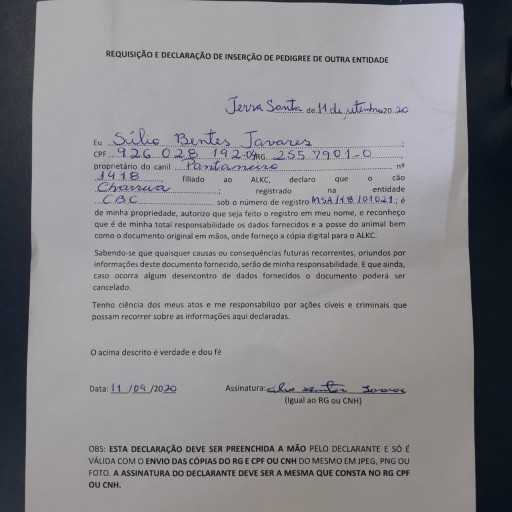 REQUISIÇÃO E DECLARAÇÃO DE INSERÇÃO DE PEDIGREE DE OUTRA ENTIDADE
Terra Santa de 11 de setembro 2020
Eu Súlio Bentes Tavares;
CPF 926 028 192-04 RG 2557901-0,
proprietário do canil Pantaneiro nº
1918, filiado ao ALKC, declaro que o cão
Charrua, registrado na entidade
CBC sob o número de registro MSA/18/01021; é
de minha propriedade, autorizo que seja feito o registro em meu nome, e reconheço
que é de minha total responsabilidade os dados fornecidos e a posse do animal bem
como o documento original em mãos, onde forneço a cópia digital para o ALKC.
Sabendo-se que quaisquer causas ou consequências futuras recorrentes, oriundos por
informações deste documento fornecido, serão de minha responsabilidade. E que ainda,
caso ocorra algum desencontro de dados fornecidos o documento poderá ser
cancelado.
Tenho ciência dos meus atos e me responsabilizo por ações cíveis e criminais que
possam recorrer sobre as informações aqui declaradas.
O acima descrito é verdade e dou fé
Data: 11 /09 /2020 Assinatura:
(Igual ao RG ou CNH)
OBS: ESTA DECLARAÇÃO DEVE SER PREENCHIDA A MÃO PELO DECLARANTE E SÓ É
VÁLIDA COM O ENVIO DAS CÓPIAS DO RG E CPF OU CNH DO MESMO EM JPEG, PNG OU
FOTO. A ASSINATURA DO DECLARANTE DEVE SER A MESMA QUE CONSTA NO RG CPF
OU CNH.